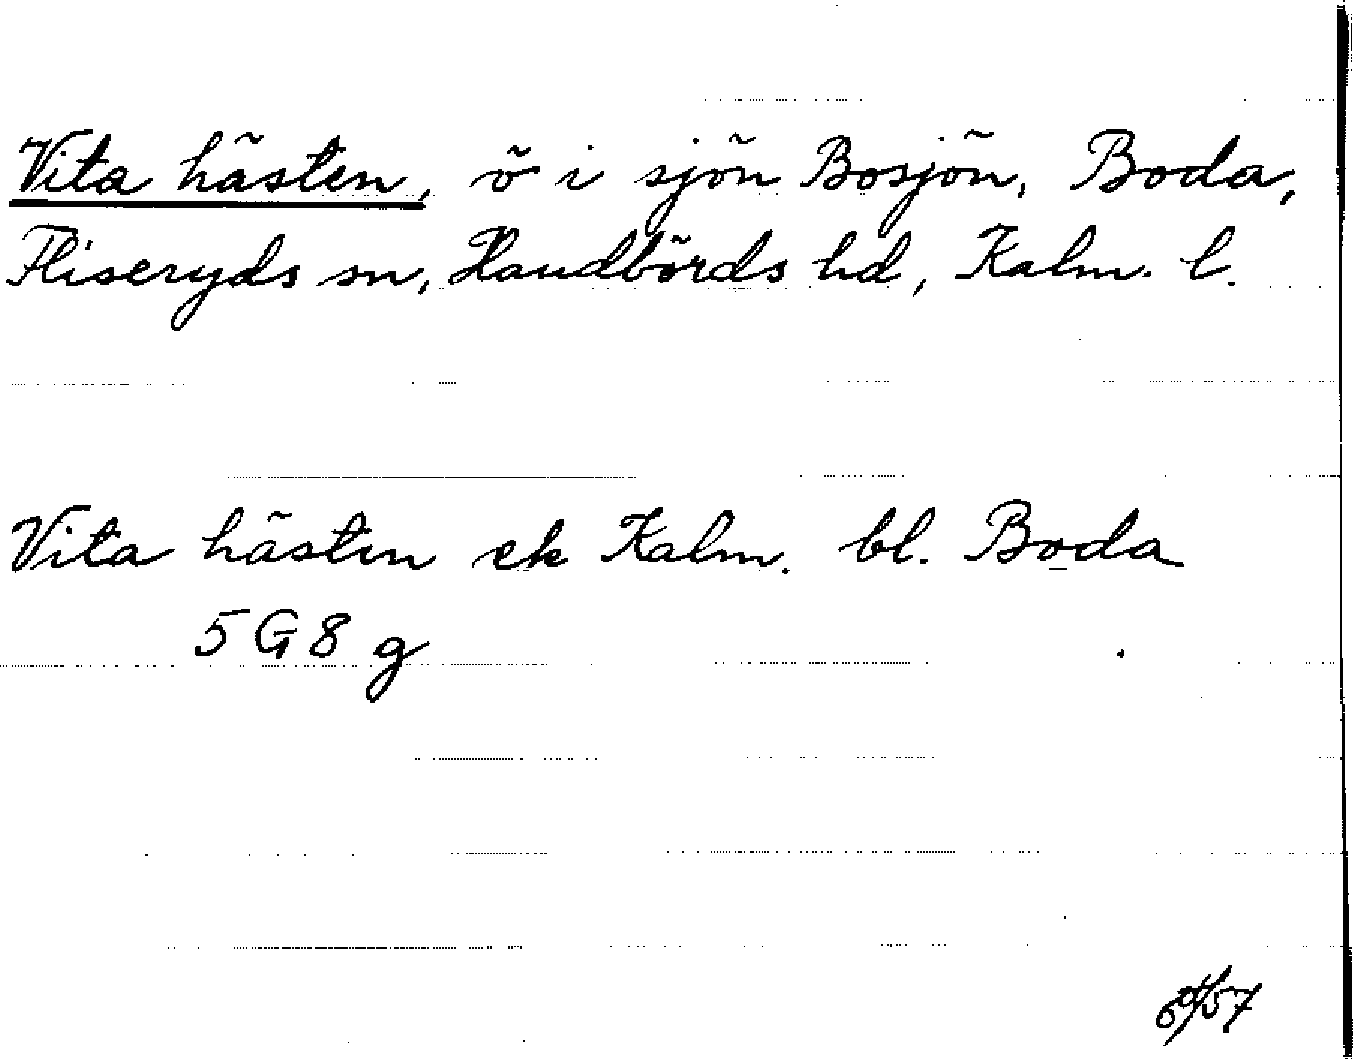 Vita hästen, ö i sjön Bosjön, Boda,
Fliseryds sn, Handbörds hd, Kalm. l.
Vita hästen ek Kalm. bl. Boda
5 G 8 g